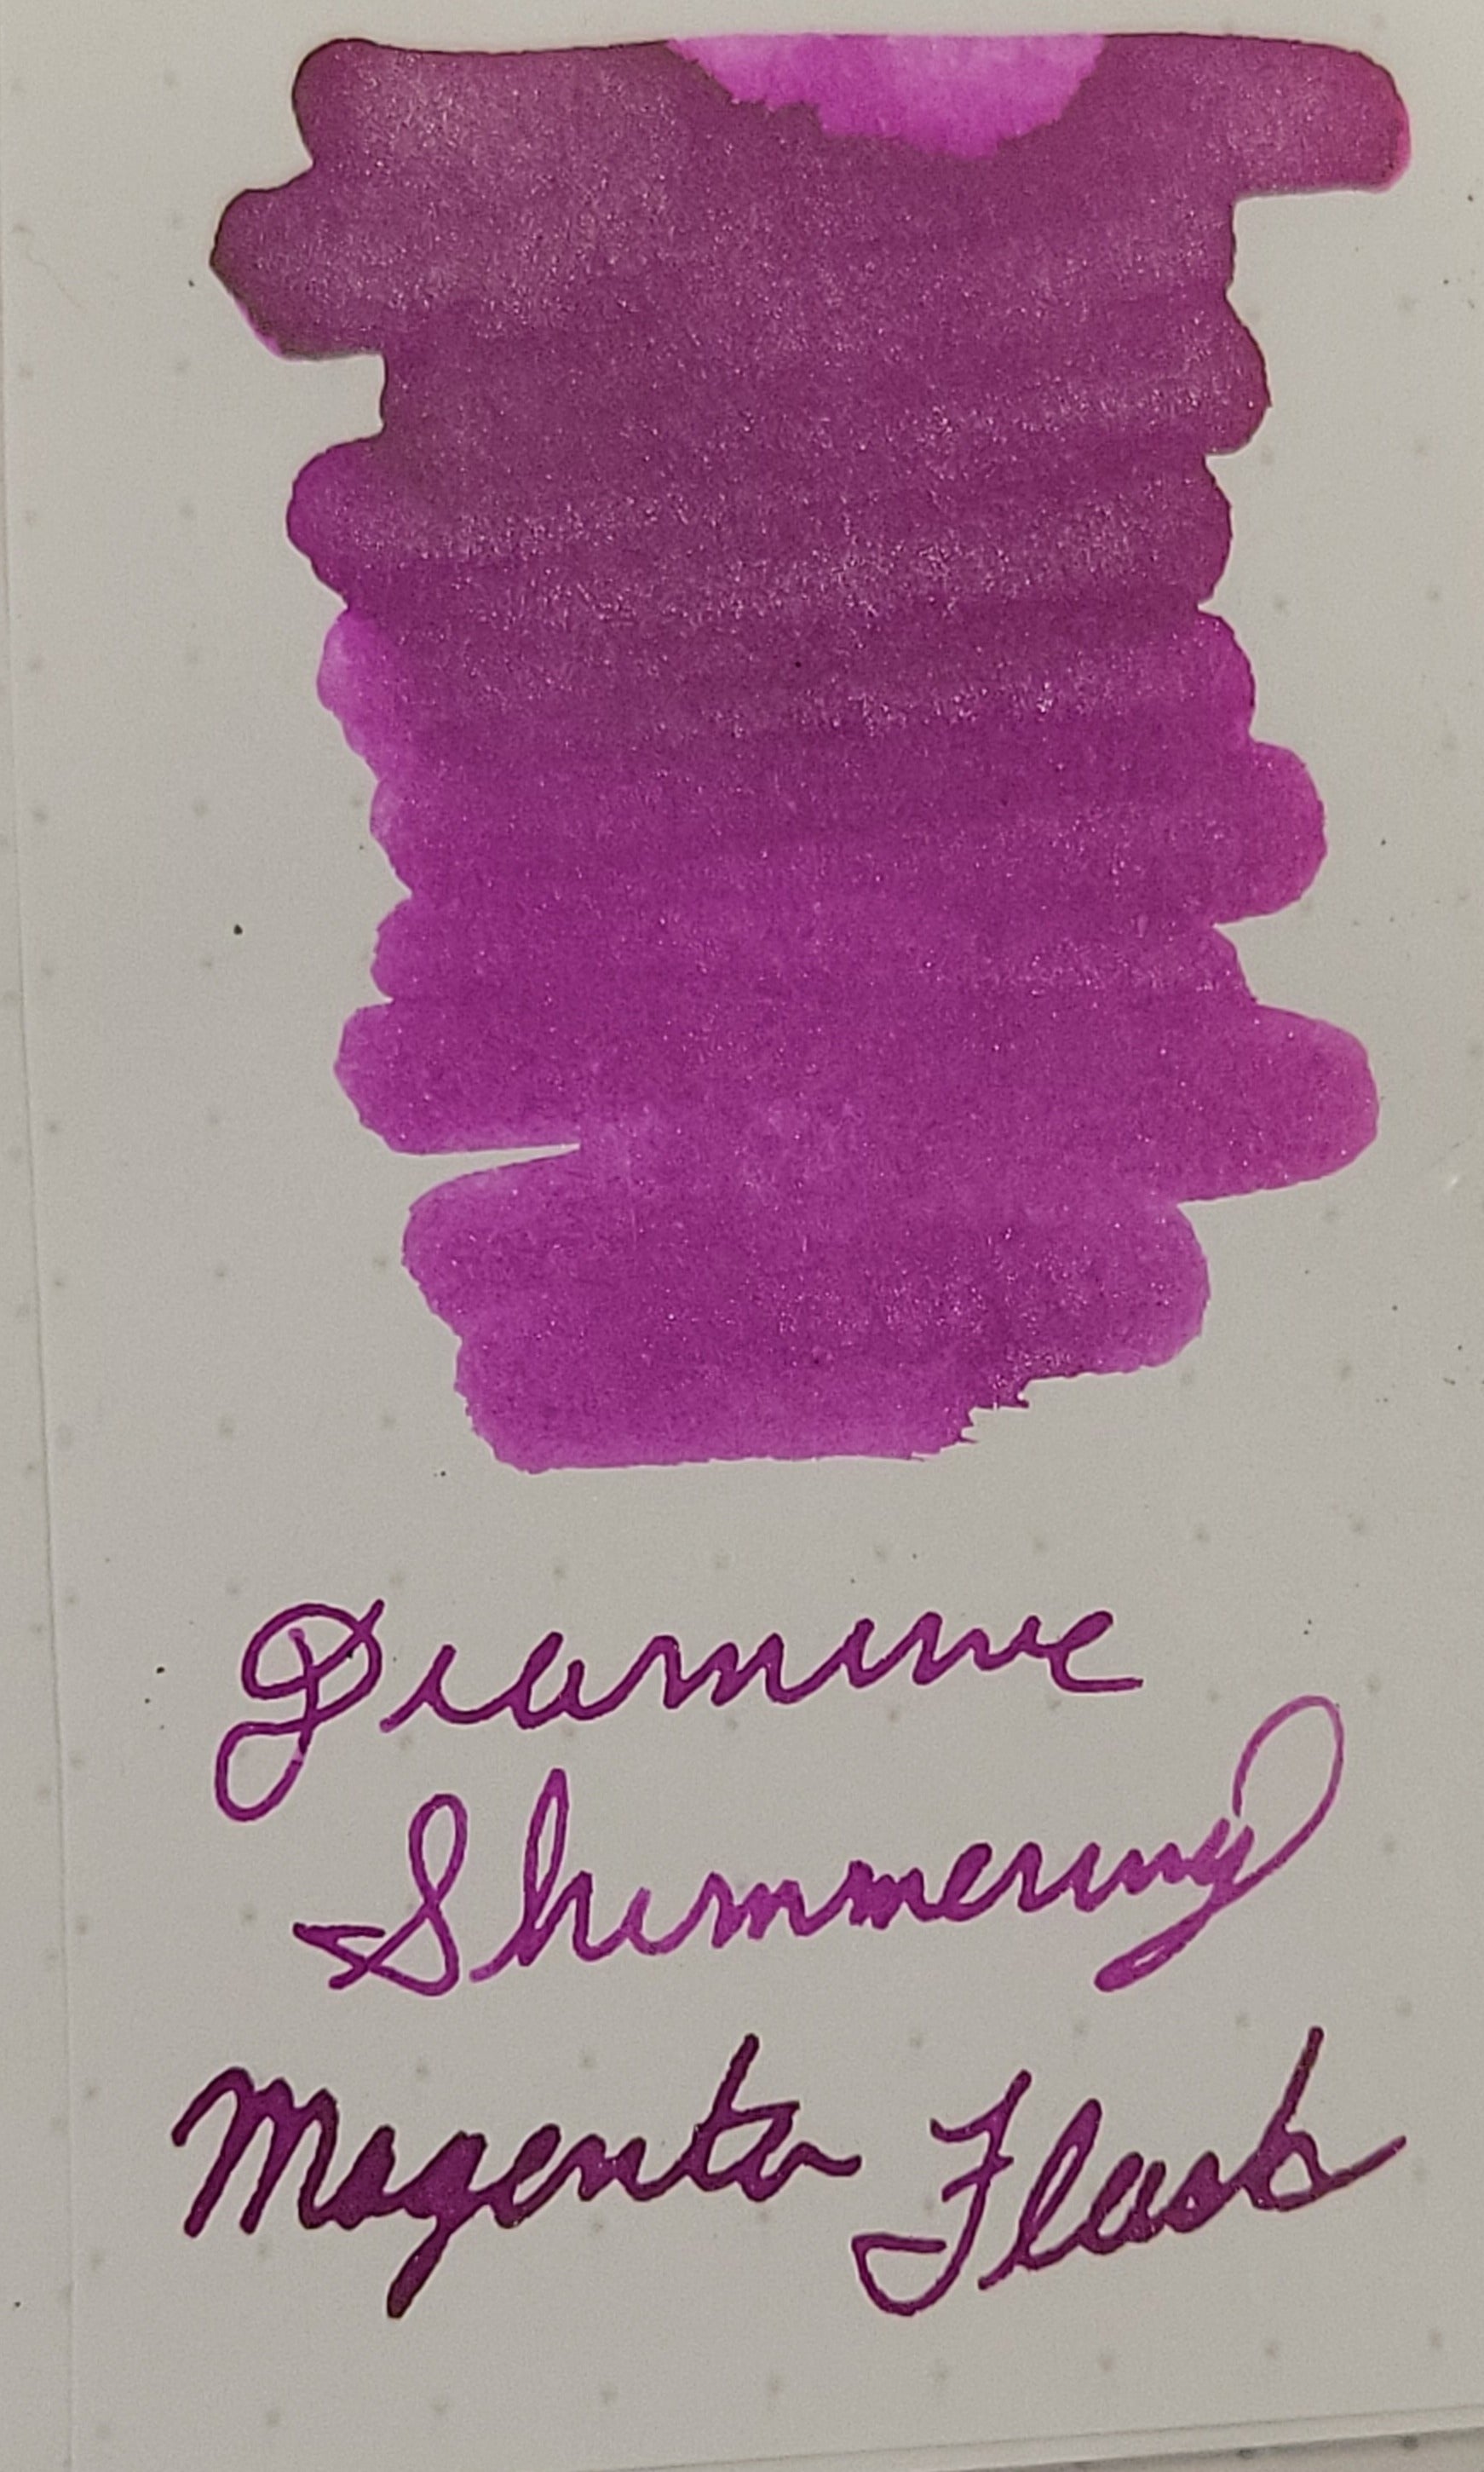 Diamine
Shimmering
Magenta Flash